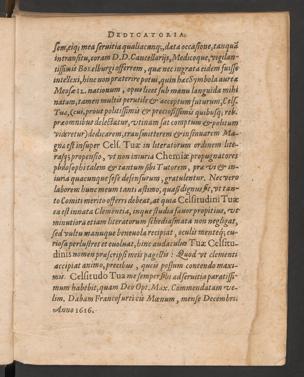 DEDICATORIA.
sem, eiq; mea seruitia qualiacunq;, data occasione, tanquā
in transitu, coram D.D. Cancellarijs, Medicoque, vigilan-
tissimis Boxelburgi offerrem, quæ nec ingrata eidem fuisse
intellexi, hinc non prætrire potui, quin hæc Symbola aureæ
Mensæ 12. nationum, opus licet sub manu languida mihi
natum, tamen multis perutile & acceptum futurum, Cels.
Tuæ, ceui, prout politissimis & preciosissimis quibusq; reb.
præ omnibus delectatur, vtinam sat comptum & politum
videretur) dedicarem, transmitterem & insinuarem Ma-
gna est insuper Cels. Tuæ in literatorum ordinem lite-
rasq; propensio, vt non iniuria Chemiæ propugnatores
philosophi talem & tantum sibi Tutorem, præ vi & in-
iuria quacunque sese defensurum, gratulentur. Nec vero
laborem hunc meum tanti æstimo, quasi dignus sit, vt tan-
to Comiti merito offerri debeat, at quia Celsitudini Tuæ
ea est innata Clementia, inque studia fauor propitius, vt
minutiora etiam literatorum schediasmata non negligat,
sed vultu manuque beneuola recipiat, oculis menteq; cu-
riosa perlustret et euoluat, hinc audaculus Tuæ Celsitu-
dinis nomen præscripsi meis pagellis: Quod vt clementi
accipiat animo, precibus, queis possum contendo maxi-
mis. Celsitudo Tua me semper sibi ad seruitia paratissi-
mum habebit, quam Deo Opt. Max. Commendatam ve-
lim. Dabam Francofurti ad Mœnum, mense Decembri
Anno 1616.